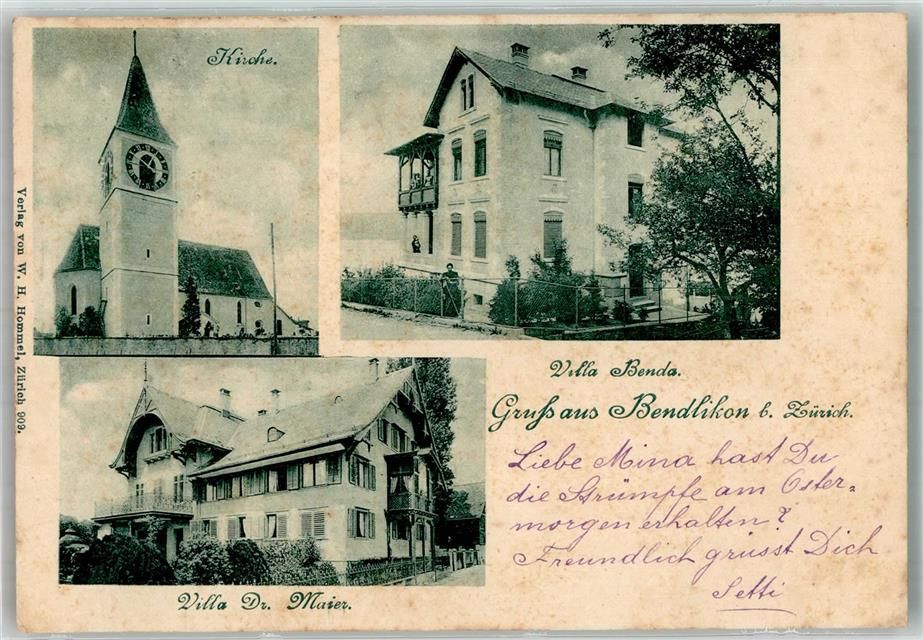 Kirche.
Villa Benda.
Gruß aus Bendlikon b. Zürich.
Liebe Mina hast Du
die Strümpfe am Oster-
morgen erhalten?
Freundlich grüsst Dich
Setti
Villa Dr. Maier.
Verlag von W. H. Hommel, Zürich 909.